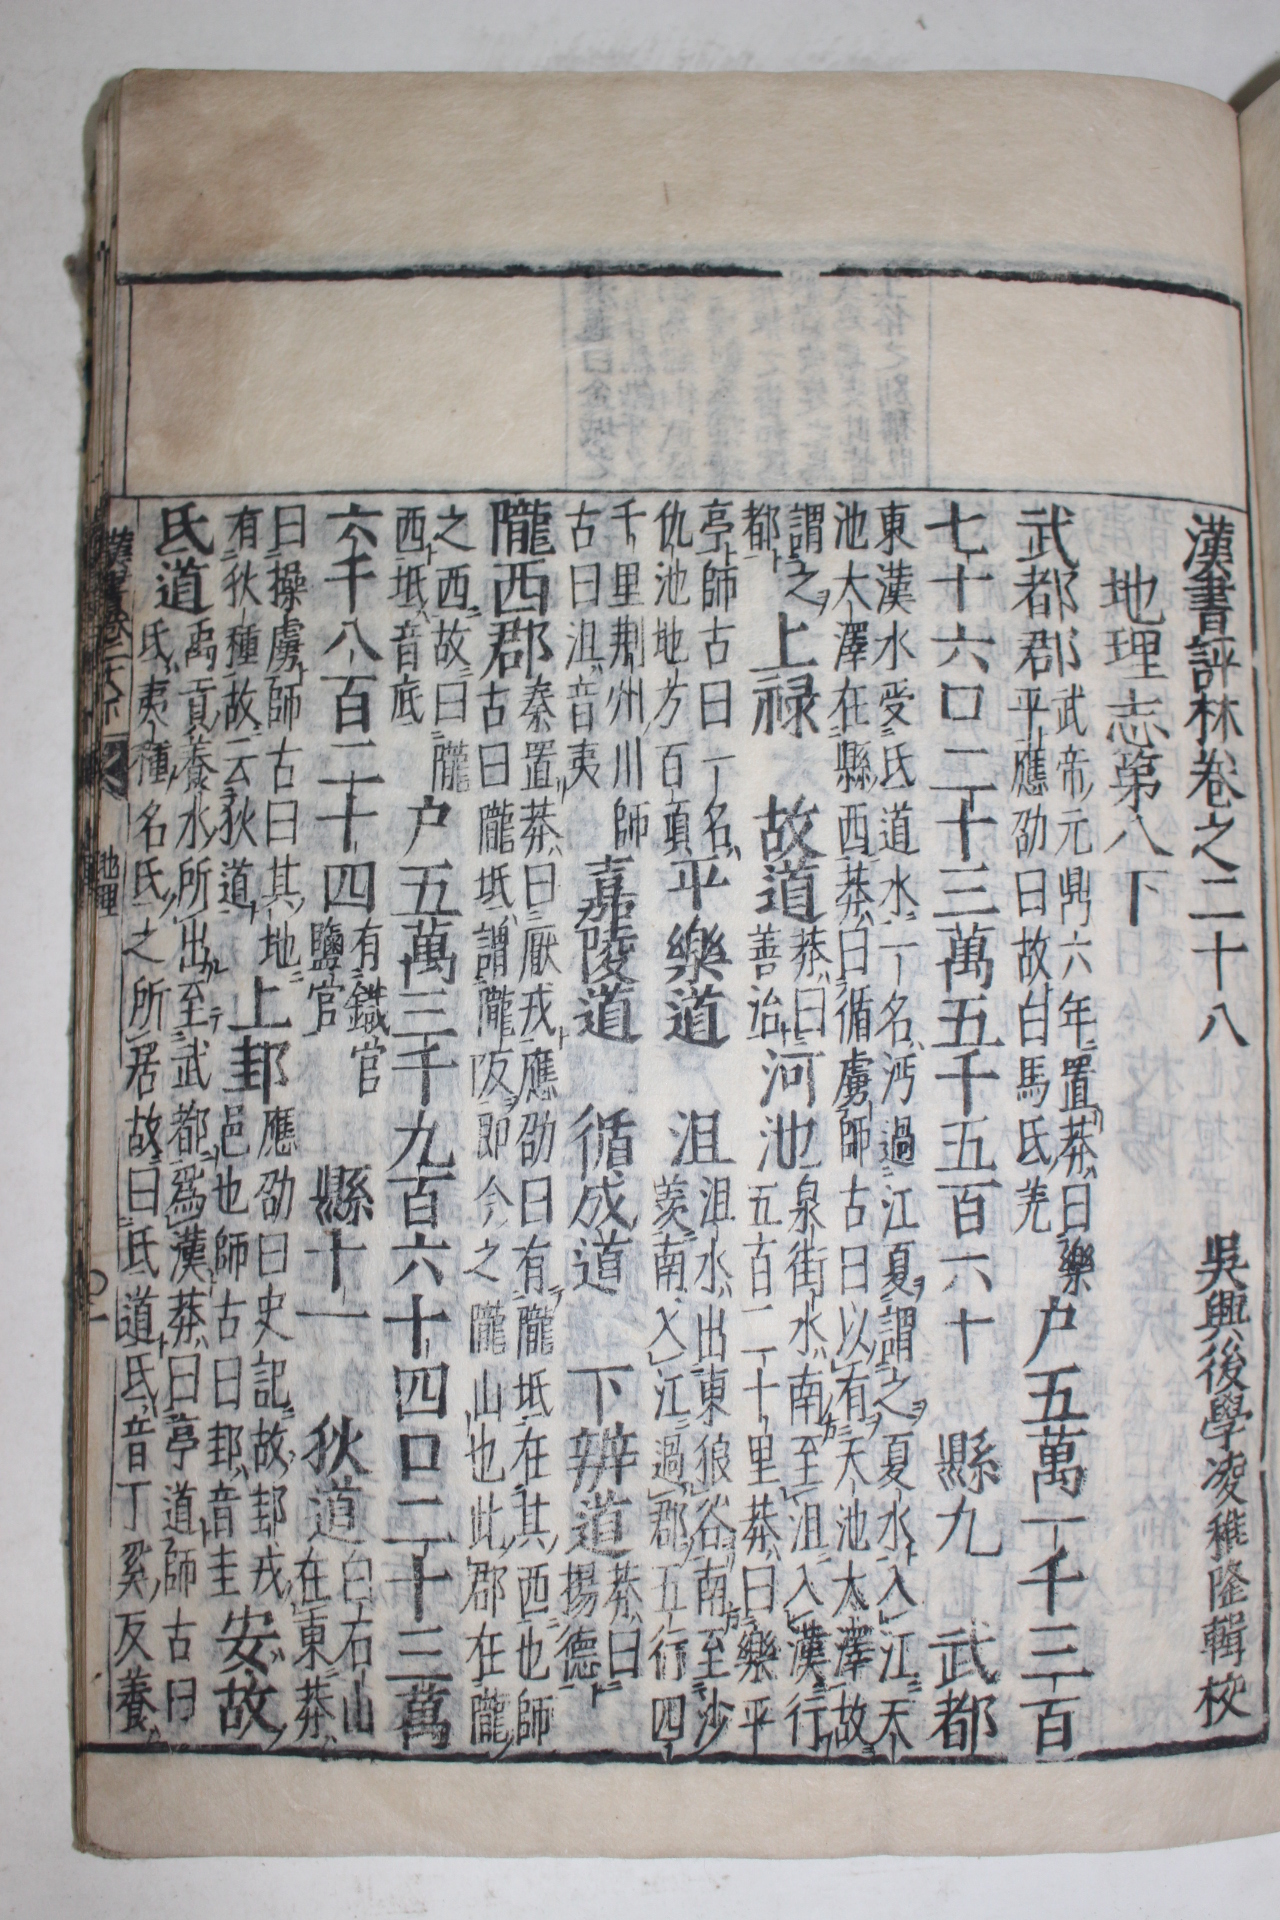 漢書評林卷之二十八 吳興後學凌稚隆輯校
地理志第八下
武都郡 武帝元鼎六年置莽曰樂平應劭曰故白馬氐羌 戶五萬一千三百
七十六口二十三萬五千五百六十 縣九 武都
東漢水受氐道水一名沔過江夏謂之夏水入江天
池大澤在縣西莽曰循虜師古曰以有天池大澤故
謂之都 上祿 故道 莽曰善治 河池 泉街水南至沮入漢行五百二十里莽曰樂平
亭師古曰一名仇池地方百頃 平樂道 沮 沮水出東狼谷南至沙羨南入江過郡五行四
千里荆州川師古曰沮音夷 嘉陵道 循成道 下辨道 莽曰揚德
隴西郡 秦置莽曰厭戎應劭曰有隴坻在其西也師古曰隴坻謂隴阪即今之隴山也此郡在隴
之西故曰隴西坻音底 戶五萬三千九百六十四口二十三萬
六千八百二十四 有鐵官鹽官 縣十一 狄道 白石山在東莽
曰操虜師古曰其地有狄種故云狄道 上邽 應劭曰史記故邽戎邑也師古曰邽音圭 安故
氐道 禹貢養水所出至武都爲漢莽曰亭道師古曰氐夷種名氐之所居故曰氐道氐音丁奚反養
漢書卷二十八下 地理 一